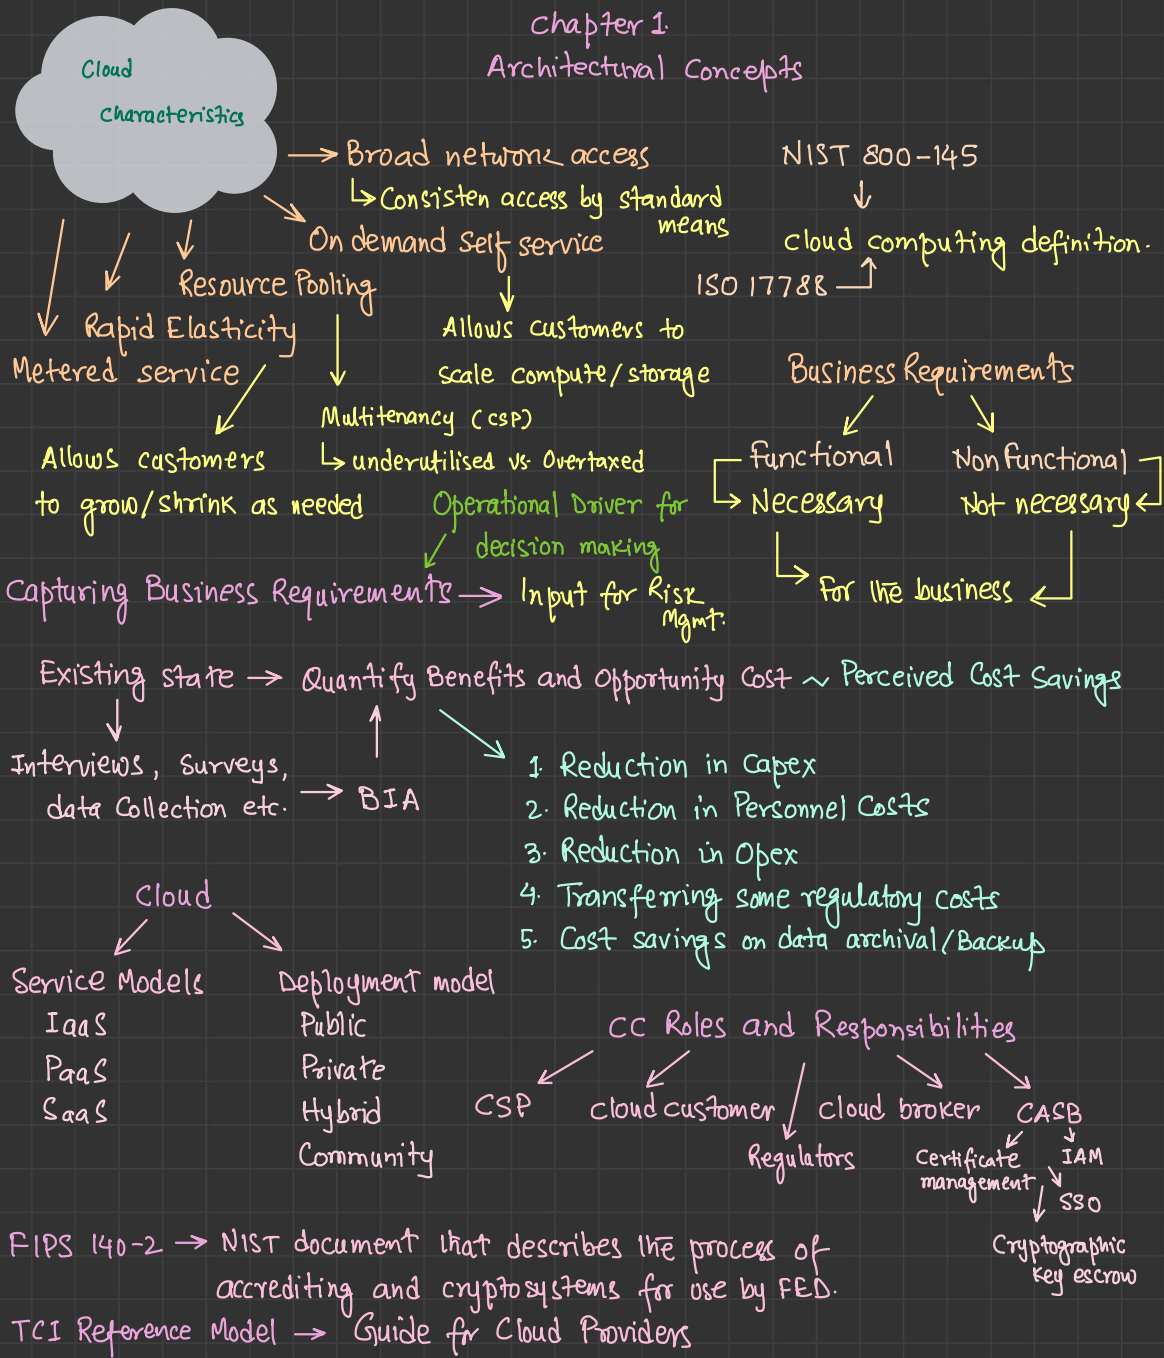 Chapter 1.
Architectural Concepts
Cloud
Characteristics
Broad network access
Consisten access by standard
means
On demand Self service
Allows customers to
scale compute/storage
Resource Pooling
Multitenancy (CSP)
underutilised vs. Overtaxed
Rapid Elasticity
Allows customers
to grow/shrink as needed
Metered service
NIST 800-145
Cloud computing definition.
ISO 17788
Business Requirements
Functional
Non functional
Necessary
Not necessary
For the business
Operational Driver for
decision making
Capturing Business Requirements
Input for Risk
Mgmt.
Existing state
Quantify Benefits and Opportunity Cost ~ Perceived Cost Savings
Interviews, Surveys,
data Collection etc.
BIA
1. Reduction in Capex
2. Reduction in Personnel Costs
3. Reduction in Opex
4. Transferring some regulatory costs
5. Cost savings on data archival/Backup
Cloud
Service Models
IaaS
PaaS
SaaS
Deployment model
Public
Private
Hybrid
Community
CC Roles and Responsibilities
CSP
Cloud customer
Regulators
Cloud broker
CASB
Certificate
management
IAM
SSO
Cryptographic
Key escrow
FIPS 140-2 → NIST document that describes the process of
accrediting and cryptosystems for use by FED.
TCI Reference Model → Guide for Cloud Providers